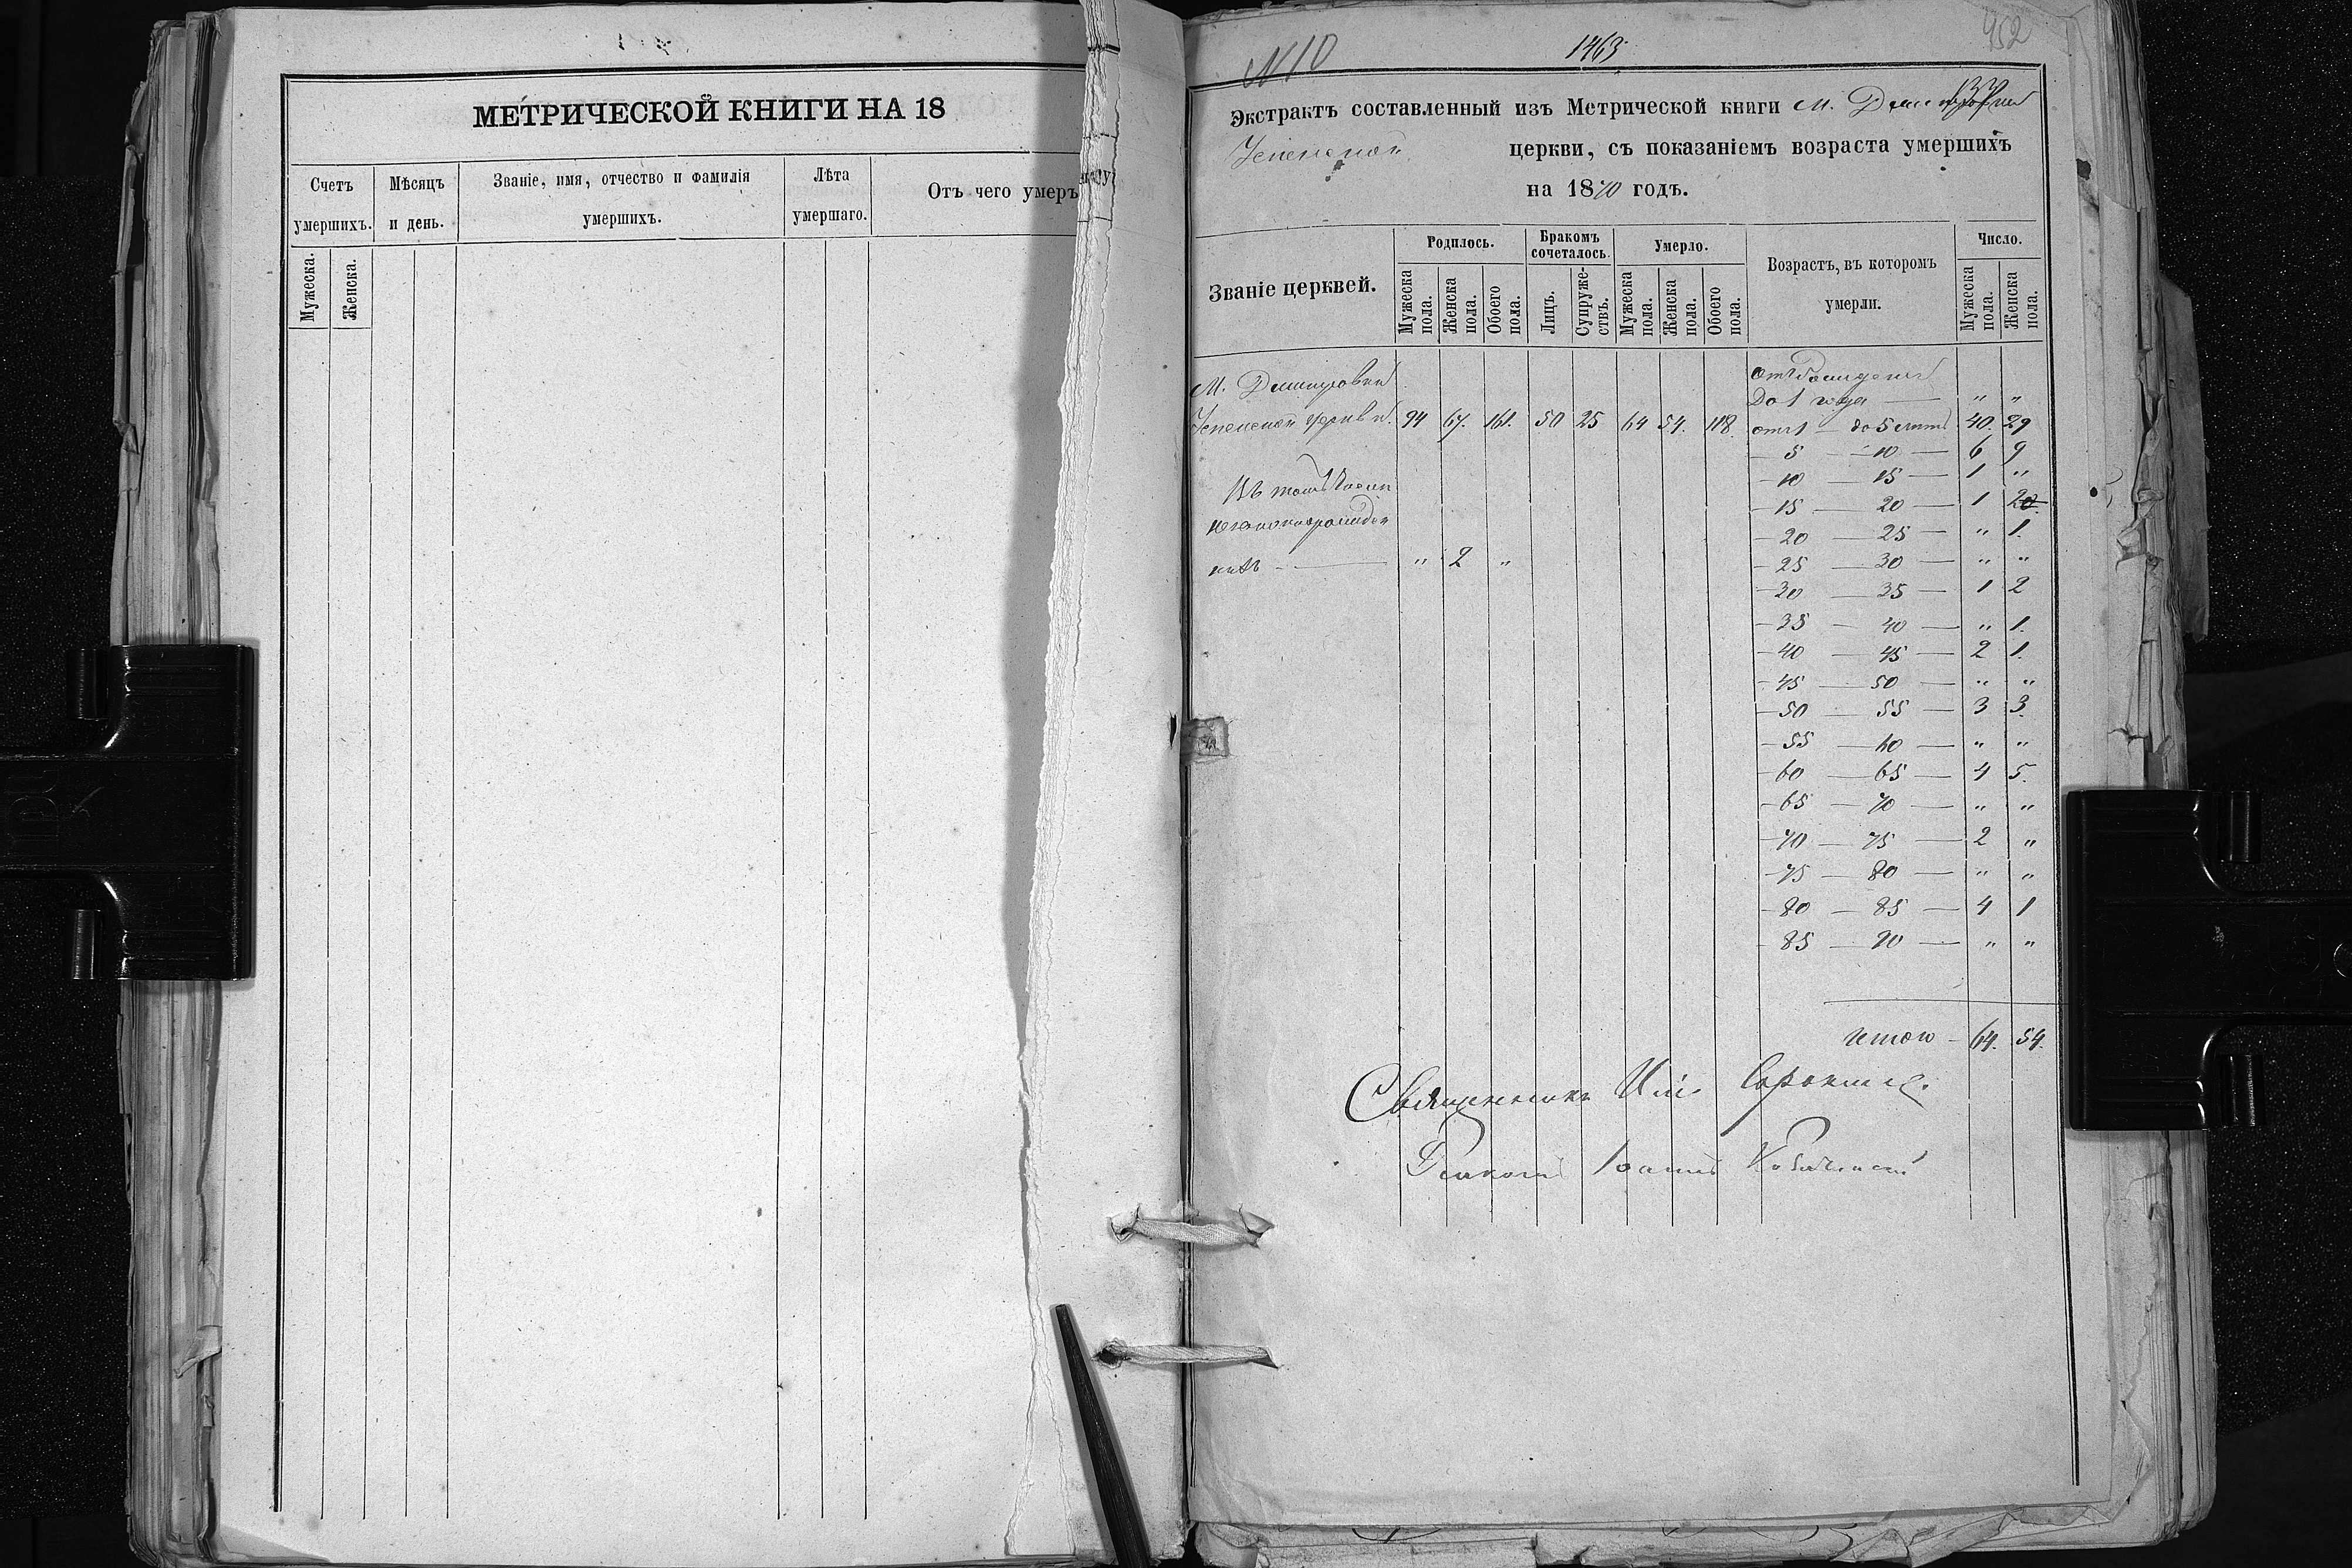 МЕТРИЧЕСКОЙ КНИГИ НА 18
Счетъ умершихъ.
Мѣсяцъ и день.
Званіе, имя, отчество и фамилія умершихъ.
Лѣта умершаго.
Отъ чего умеръ
Мужеска.
Женска.
№10
1463
952
Экстрактъ составленный изъ Метрической книги м. Дмитровки
Успенской церкви, съ показаніемъ возраста умершихъ
на 1870 годъ.
Званіе церквей.
Родилось.
Бракомъ сочеталось.
Умерло.
Возрастъ, въ которомъ умерли.
Число.
Мужеска пола.
Женска пола.
Обоего пола.
Лицъ.
Супружествъ.
Мужеска пола.
Женска пола.
Обоего пола.
Мужеска пола.
Женска пола.
М. Дмитровки
Успенской церкви. 94 67. 161. 50 25 64 54. 118.
Въ томъ числѣ
незаконнорожден
ныхъ — " 2 "
отъ рожденія
до 1 года — " "
отъ 1 — до 5 лѣтъ 40. 29
— 5 — 10 — 6 9
— 10 — 15 — 1 "
— 15 — 20 — 1 20.
— 20 — 25 — " 1.
— 25 — 30 — " "
— 30 — 35 — 1 2
— 35 — 40 — " 1.
— 40 — 45 — 2 1.
— 45 — 50 — " "
— 50 — 55 — 3 3.
— 55 — 60 — " "
— 60 — 65 — 4 5.
— 65 — 70 — " "
— 70 — 75 — 2 "
— 75 — 80 — " "
— 80 — 85 — 4 1
— 85 — 90 — " "
Итого — 64. 54.
Священникъ
Дьяконъ Іоаннъ